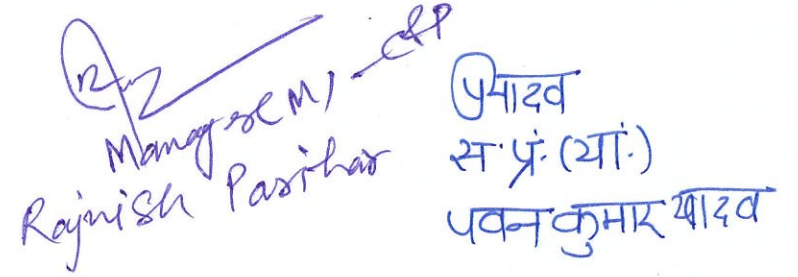 Manager(M) - CSP
Rajnish Parihar
पयादव
स.प्र.(यां.)
पवन कुमार यादव